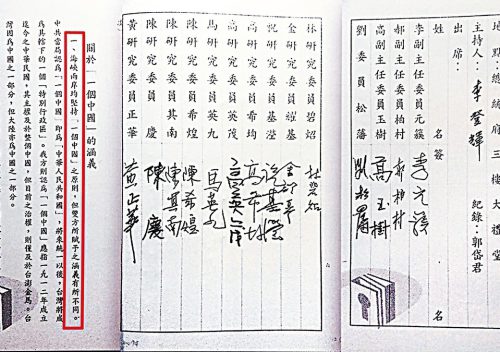 三樓大禮堂
主持人：李登輝 紀錄：郭岱君
出席：
姓名 簽名
李副主任委員元簇 李元簇
郝副主任委員柏村 郝柏村
高副主任委員玉樹 高玉樹
劉委員松藩 劉松藩
林研究委員碧炤 林碧炤
研究委員
研究委員耀基
研究委員希
高研究委員英茂 高英茂
馬研究委員英九 馬英九
陳研究委員其南 陳其南
陳研究委員慶 陳慶
黃研究委員正華 黃正華
關於「一個中國」的涵義
一、海峽兩岸均堅持「一個中國」之原則，但雙方所賦予之涵義有所不同。
中共當局認為「一個中國」即為「中華人民共和國」，將來統一以後，台灣將成
為其轄下的一個「特別行政區」。我方則認為「一個中國」應指一九一二年成立
迄今之中華民國，其主權及於整個中國，但目前之治權，則僅及於台澎金馬。台
灣固為中國之一部分，但大陸亦為中國之一部分。